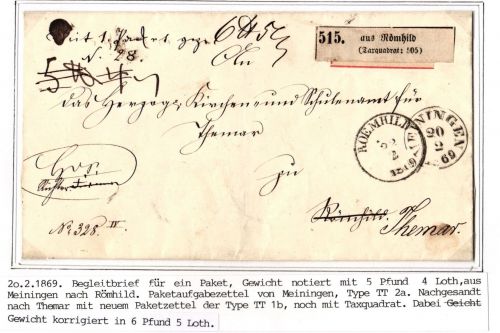 515. aus Römhild
(Taxquadrat: 505)
Mit 1. Packet
N. 28.
An
das Herzogl. Kirchen- und Schulenamt für
Themar
zu
Römhild. Themar.
ROEMHILD
NINGEN
20
2
69
No 328 IV
2o.2.1869. Begleitbrief für ein Paket, Gewicht notiert mit 5 Pfund 4 Loth,aus
Meiningen nach Römhild. Paketaufgabezettel von Meiningen, Type TT 2a. Nachgesandt
nach Themar mit neuem Paketzettel der Type TT 1b, noch mit Taxquadrat. Dabei Geicht
Gewicht korrigiert in 6 Pfund 5 Loth.